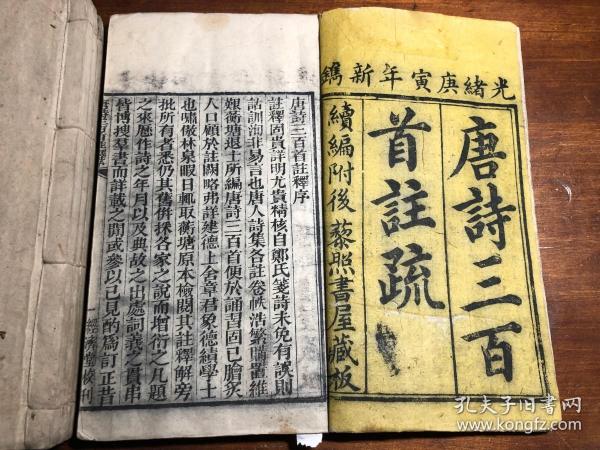 光緒庚寅年新鐫
唐詩三百
首註疏
續編附後 藜照書屋藏板
唐詩三百首註釋序
註釋固貴詳明尤貴精核自鄭氏箋詩未免有誤則
詁訓洵非易言也唐人詩集各註卷帙浩繁購置維
艱蘅塘退士所編唐詩三百首便於誦習固已膾炙
人口顧於註闕略弗詳建德上舍章君象德績學士
也嘯傲林泉暇日輒取蘅塘原本檢閱其註釋解旁
批所有者悉仍其舊併採各家之說而增衍之凡題
之來歷作詩之年月以及典故之出處詞義之貫串
皆博搜羣書而詳載之間或參以己見酌為訂正昔
經濟堂校刊
孔夫子旧书网
www.kongfz.com